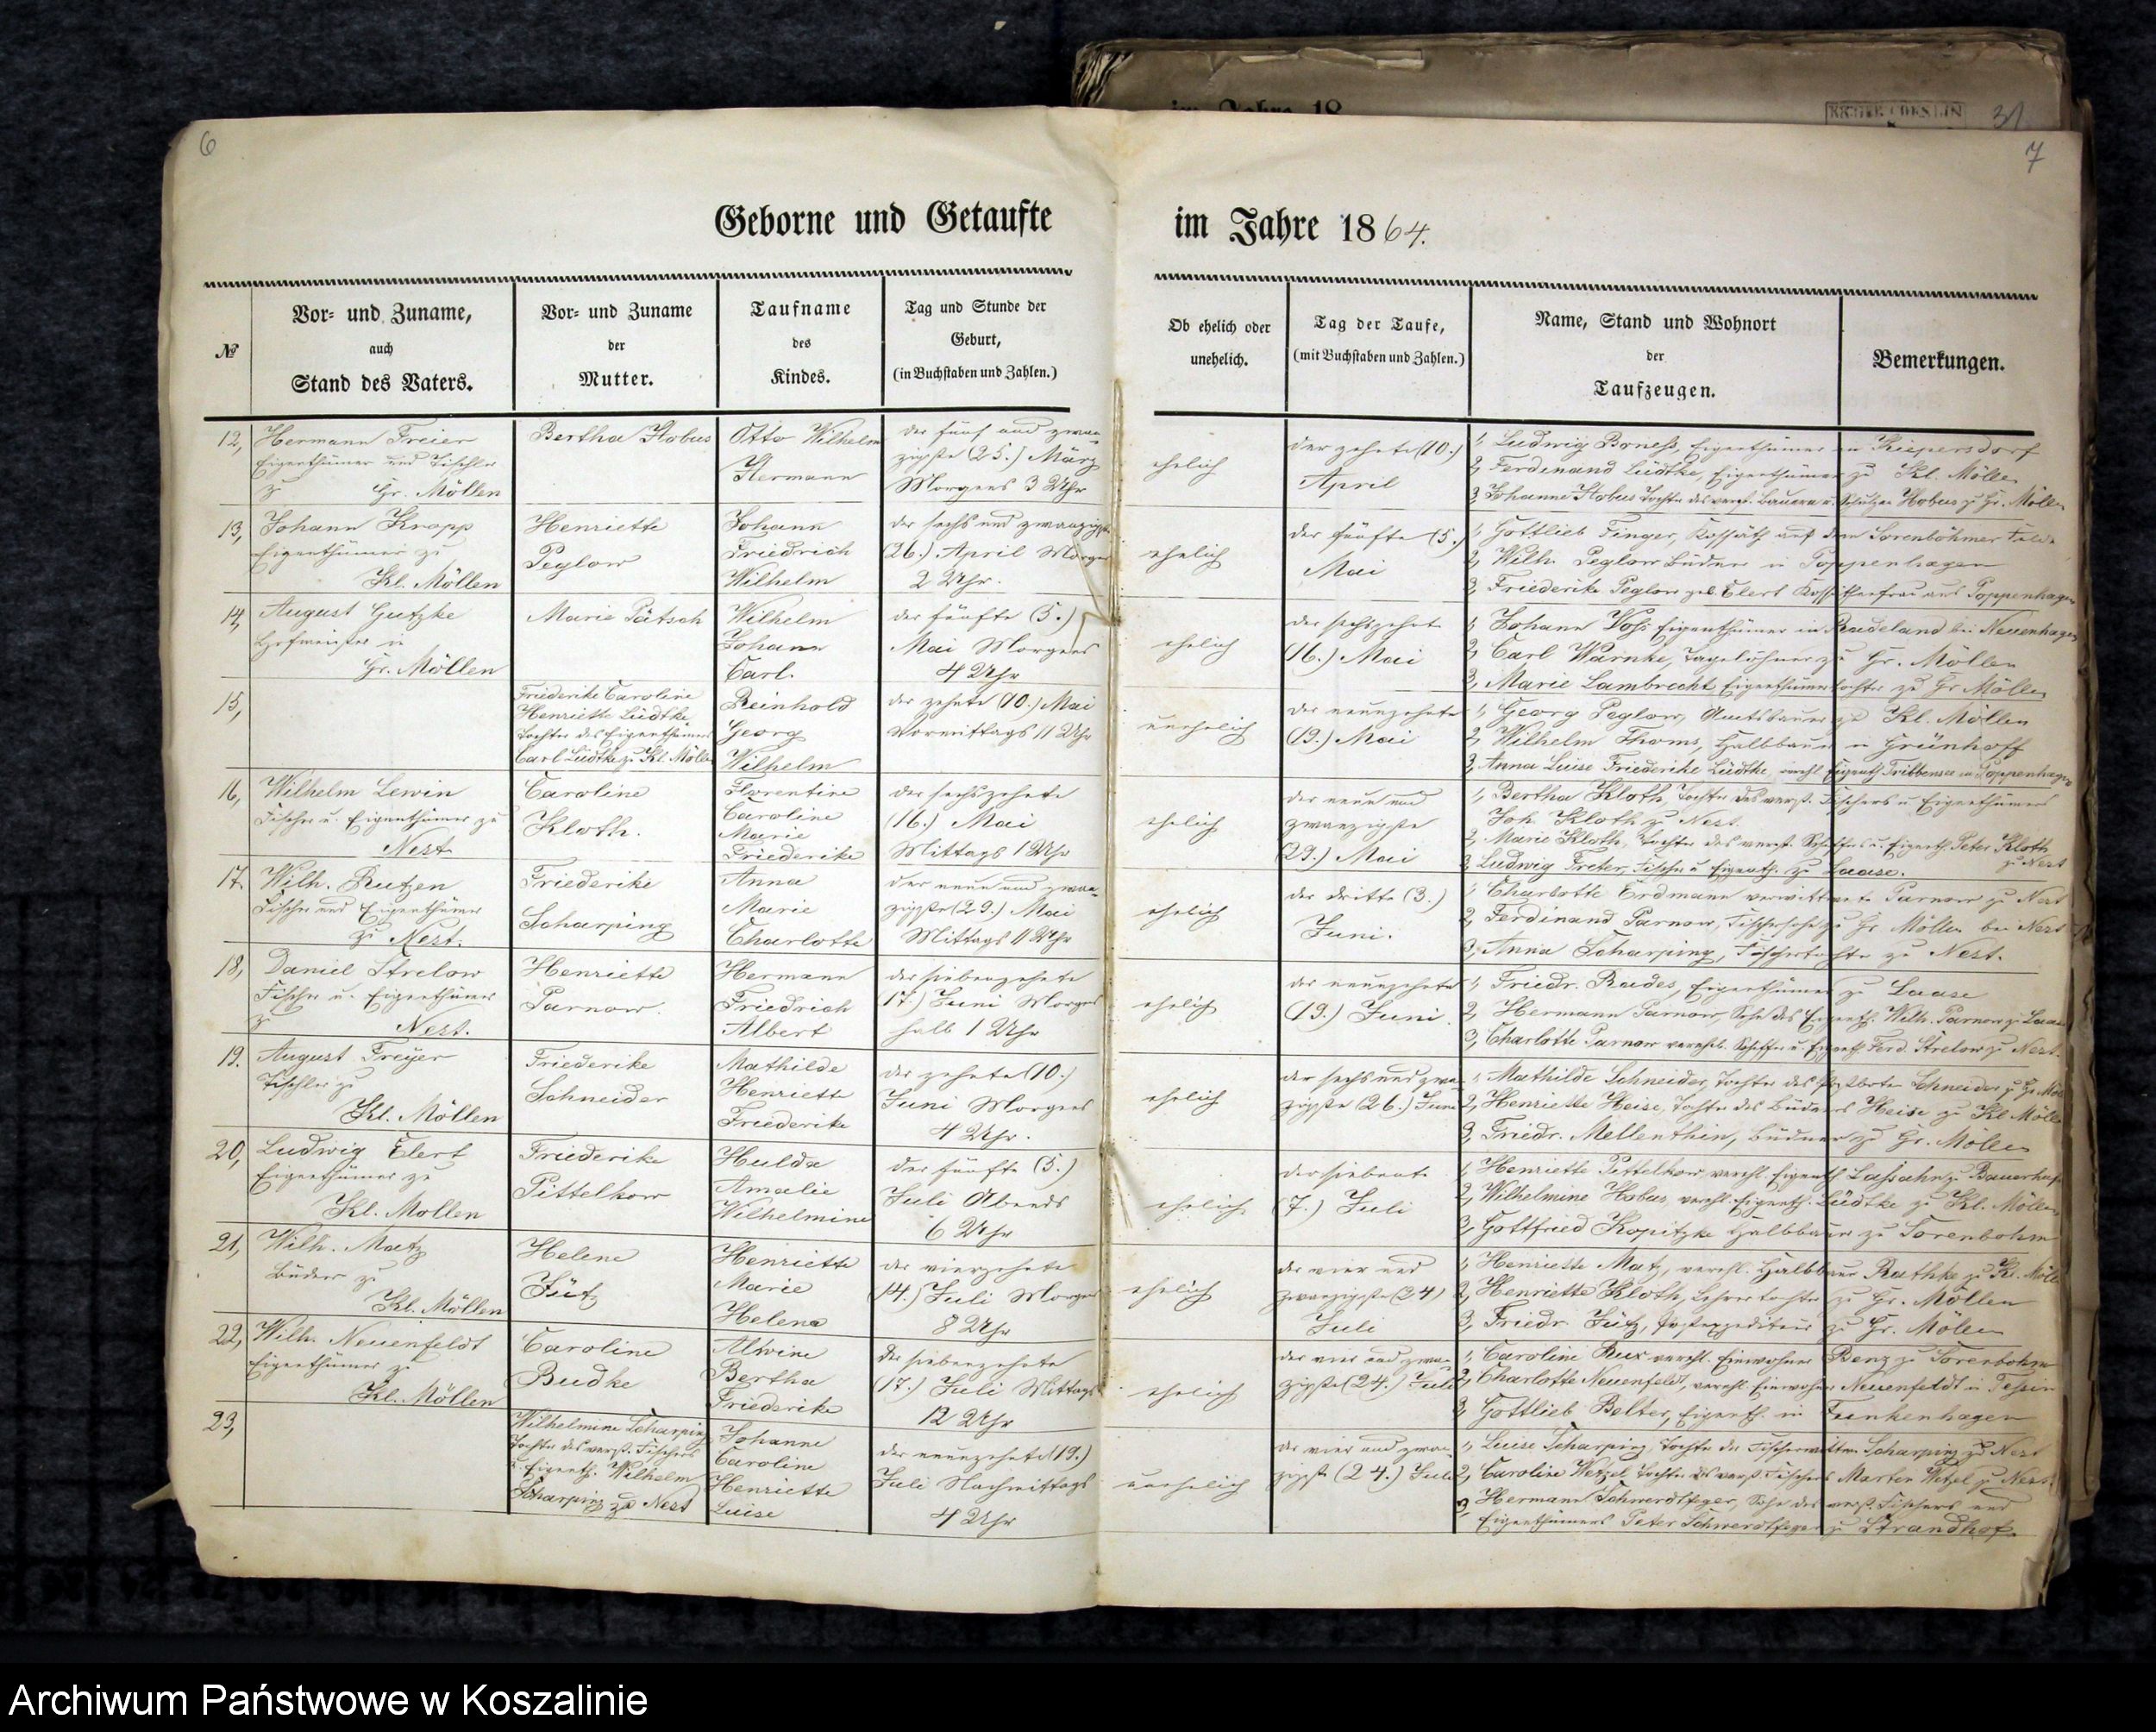 im Jahre 18
31
6
7
Geborne und Getaufte
im Jahre 1864.
№
Vor- und Zuname,
auch
Stand des Vaters.
Vor- und Zuname
der
Mutter.
Taufname
des
Kindes.
Tag und Stunde der
Geburt,
(in Buchstaben und Zahlen.)
Ob ehelich oder
unehelich.
Tag der Taufe,
(mit Buchstaben und Zahlen.)
Name, Stand und Wohnort
der
Taufzeugen.
Bemerkungen.
12,
Hermann Freier
Eigenthümer und Tischler
zu Gr. Möllen
Bertha Hobus
Otto Wilhelm
Hermann
der fünf und zwan-
zigste (25.) März
Morgens 3 Uhr
ehelich
der zehnte (10.)
April
1, Ludwig Boness, Eigenthümer in Kiepersdorf
2, Ferdinand Lüdtke, Eigenthümer zu Kl. Möllen
3, Johanne Hobus Tochter des verst. Bauern u. Schulzen Hobus zu Gr. Möllen
13,
Johann Kropp
Eigenthümer zu
Kl. Möllen
Henriette
Peglow
Johann
Friedrich
Wilhelm
der sechs und zwanzigste
(26.) April Morgens
2 Uhr.
ehelich
der fünfte (5.)
Mai
1, Gottlieb Finger, Kossäth auf dem Sorenböhmer Felde
2, Wilh. Peglow Büdner in Poppenhagen
3, Friederike Peglow geb. Elert Kossäthenfrau aus Poppenhagen
14,
August Gutzke
Hofmeister in
Gr. Möllen
Marie Pätsch
Wilhelm
Johann
Carl.
der fünfte (5.)
Mai Morgens
4 Uhr
ehelich
der sechszehnte
(16.) Mai
1, Johann Voß Eigenthümer in Radeland bei Neuenhagen
2, Carl Warnke, Tagelöhner zu Gr. Möllen
3, Marie Lambrecht Eigenthümertochter zu Gr Möllen
15,
Friederike Caroline
Henriette Lüdtke,
Tochter des Eigenthümers
Carl Lüdtke zu Kl. Möllen
Reinhold
Georg
Wilhelm
der zehnte (10.) Mai
Vormittags 11 Uhr
unehelich
der neunzehnte
(19.) Mai
1, Georg Peglow, Amtsbauer zu Kl. Möllen
2, Wilhelm Thoms, Halbbauer in Grünhoff
3, Anna Luise Friederike Lüdtke, verehl. Eigenth. Tribbensee in Poppenhagen
16,
Wilhelm Lewin
Fischer u. Eigenthümer zu
Nest
Caroline
Kloth.
Florentine
Caroline
Marie
Friederike
der sechszehnte
(16.) Mai
Mittags 1 Uhr
ehelich
der neun und
zwanzigste
(29.) Mai
1, Bertha Kloth, Tochter des verst. Fischers u Eigenthümers
Joh. Kloth zu Nest.
2, Marie Kloth, Tochter des verst. Schiffers u. Eigenth. Peter Kloth
zu Nest
3, Ludwig Freter, Fischer u Eigenth. zu Laase.
17.
Wilh. Rutzen
Fischer und Eigenthümer
zu Nest.
Friederike
Scharping
Anna
Marie
Charlotte
der neun und zwan-
zigste (29.) Mai
Mittags 11 Uhr
ehelich
der dritte (3.)
Juni.
1, Charlotte Erdmann verwittwete Parnow zu Nest
2, Ferdinand Parnow, Fischersohn zu Gr Möllen bei Nest
3, Anna Scharping, Fischertochter zu Nest.
18,
Daniel Strelow
Fischer u. Eigenthümer
zu Nest.
Henriette
Parnow.
Hermann
Friedrich
Albert
der siebenzehnte
(17.) Juni Morgens
halb 1 Uhr
ehelich
der neunzehnte
(19.) Juni
1, Friedr. Rades, Eigenthümer zu Laase
2, Hermann Parnow, Sohn des Eigenth. Wilh. Parnow zu Laase
3, Charlotte Parnow verehl. Schiffer u. Eigenth. Ferd. Strelow zu Nest.
19.
August Freyer
Tischler zu
Kl. Möllen
Friederike
Schneider
Mathilde
Henriette
Friederike
der zehnte (10.)
Juni Morgens
4 Uhr.
ehelich
der sechs und zwan-
zigste (26.) Juni
1, Mathilde Schneider, Tochter des Schneider zu Gr. Möllen
2, Henriette Heise, Tochter des Büdners Heise zu Kl Möllen
3, Friedr. Mellenthin, Büdner zu Gr. Möllen
20,
Ludwig Elert
Eigenthümer zu
Kl. Mollen
Friederike
Pittelkow
Hulda
Amalie
Wilhelmine
der fünfte (5.)
Juli Abends
6 Uhr
ehelich
der siebente
(7.) Juli
1, Henriette Pittelkow verehl. Eigenth. Lassahn zu Bauerhufen
2, Wilhelmine Hobus, verehl. Eigenth. Lüdtke zu Kl. Möllen,
3, Gottfried Kopitzke Halbbauer zu Sorenbohm
21,
Wilh. Matz
Büdner zu
Kl. Möllen
Helene
Jütz
Henriette
Marie
Helene
der vierzehnte
(14.) Juli Morgens
8 Uhr
ehelich
der vier und
zwanzigste (24)
Juli
1, Henriette Matz, verehl. Halbbauer Rathke zu Kl. Möllen
2, Henriette Kloth, Lehrertochter zu Gr. Möllen
3, Friedr. Jütz, Postexpediteur zu Gr. Möllen
22,
Wilh. Neuenfeldt
Eigenthümer zu
Kl. Möllen
Caroline
Budke
Alwine
Bertha
Friederike
der siebenzehnte
(17.) Juli Mittags
12 Uhr
ehelich
der vier und zwan-
zigste (24.) Juli
1, Caroline Bux verehl. Einwohner Benz zu Sorenbohm
2, Charlotte Neuenfeldt, verehl. Einwohner Neuenfeldt in Tessin
3, Gottlieb Belter, Eigenth. in Funkenhagen
23,
Wilhelmine Scharping
Tochter des verst. Fischers
u. Eigenth. Wilhelm
Scharping zu Nest
Johanne
Caroline
Henriette
Luise
der neunzehnte (19.)
Juli Nachmittags
4 Uhr
unehelich
der vier und zwan-
zigste (24.) Juli
1, Luise Scharping, Tochter der Fischerwittwe Scharping zu Nest
2, Caroline Wetzel Tochter des verst. Fischers Martin Wetzel zu Nest.
3, Hermann Schwerdtfeger, Sohn des verst. Fischers und
Eigenthümers Peter Schwerdtfeger zu Strandhof.
Archiwum Państwowe w Koszalinie